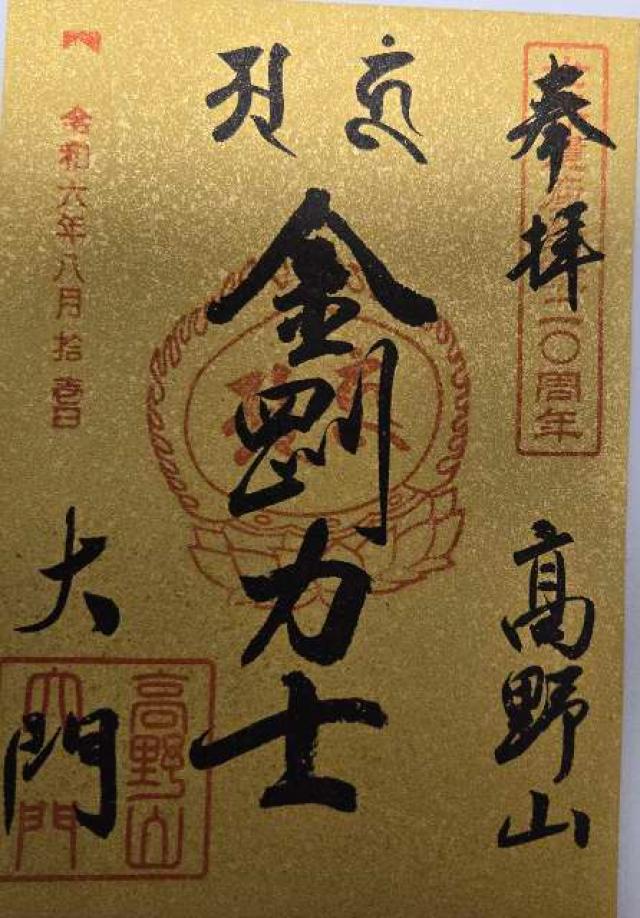 奉拝
高野山
二〇周年
金剛力士
令和六年八月拾壱日
大門
高野山
大門